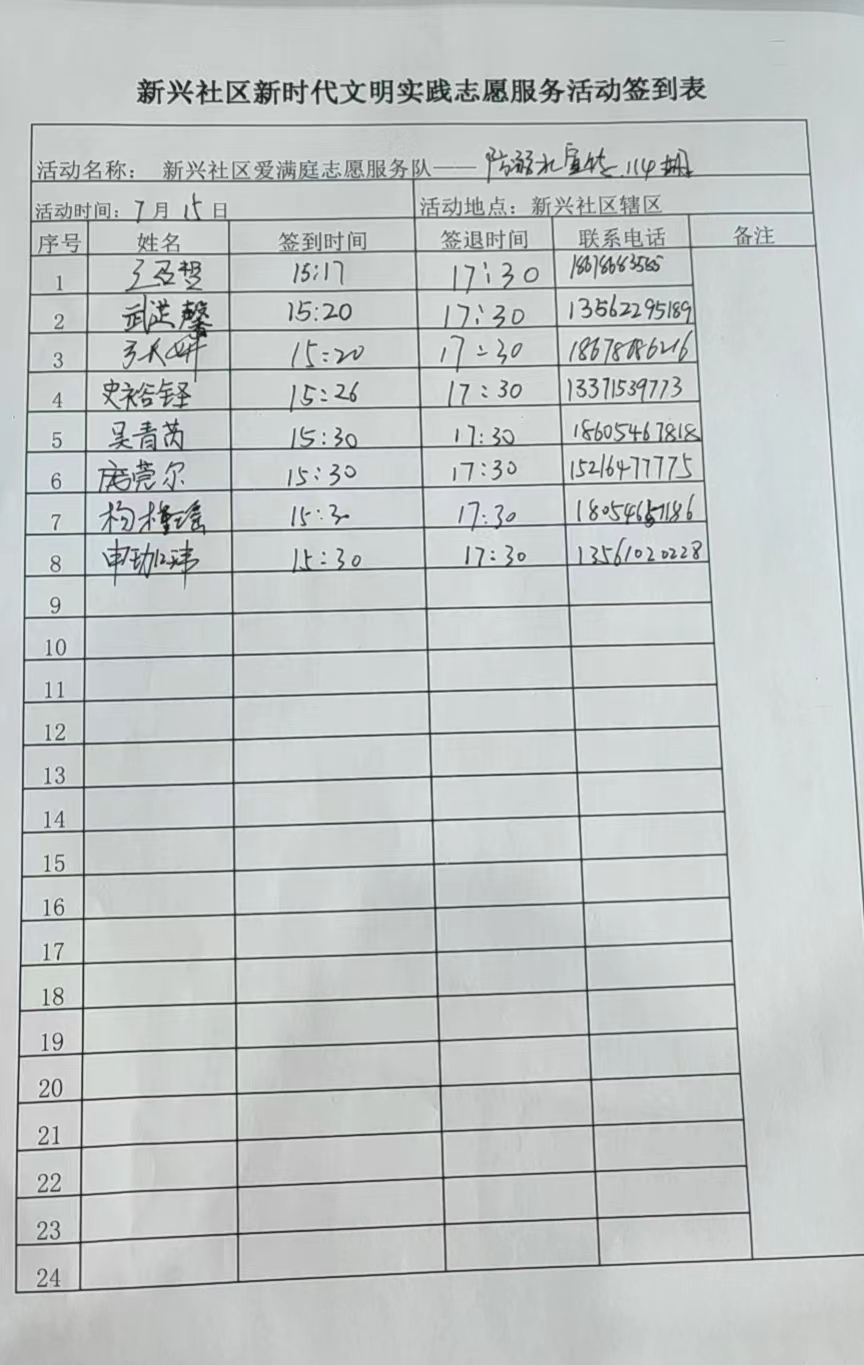 新兴社区新时代文明实践志愿服务活动签到表
活动名称： 新兴社区爱满庭志愿服务队——防溺水宣传 114期
活动时间：7月15日 活动地点：新兴社区辖区
序号 姓名 签到时间 签退时间 联系电话 备注
1 15:17 17:30
2 武洪馨 15:20 17:30 13562295189
3 15:20 17:30 18678686216
4 史裕铎 15:26 17:30 13371539773
5 吴青芮 15:30 17:30 18605467818
6 庞莞尔 15:30 17:30 15216477775
7 15:3 17:30
8 15:30 17:30 13561020228
9
10
11
12
13
14
15
16
17
18
19
20
21
22
23
24